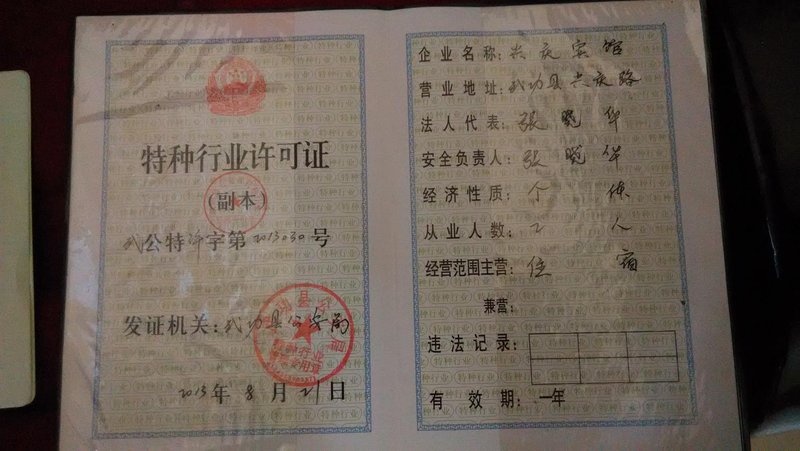 特种行业许可证
(副本)
武公特许字第2013030号
发证机关:武功县公安局
2013年8月21日
企业名称:兴庆宾馆
营业地址:武功县兴庆路
法人代表:张晓华
安全负责人:张晓华
经济性质:个体
从业人数:2人
经营范围主营:住宿
兼营:
违法记录:
有效期:一年